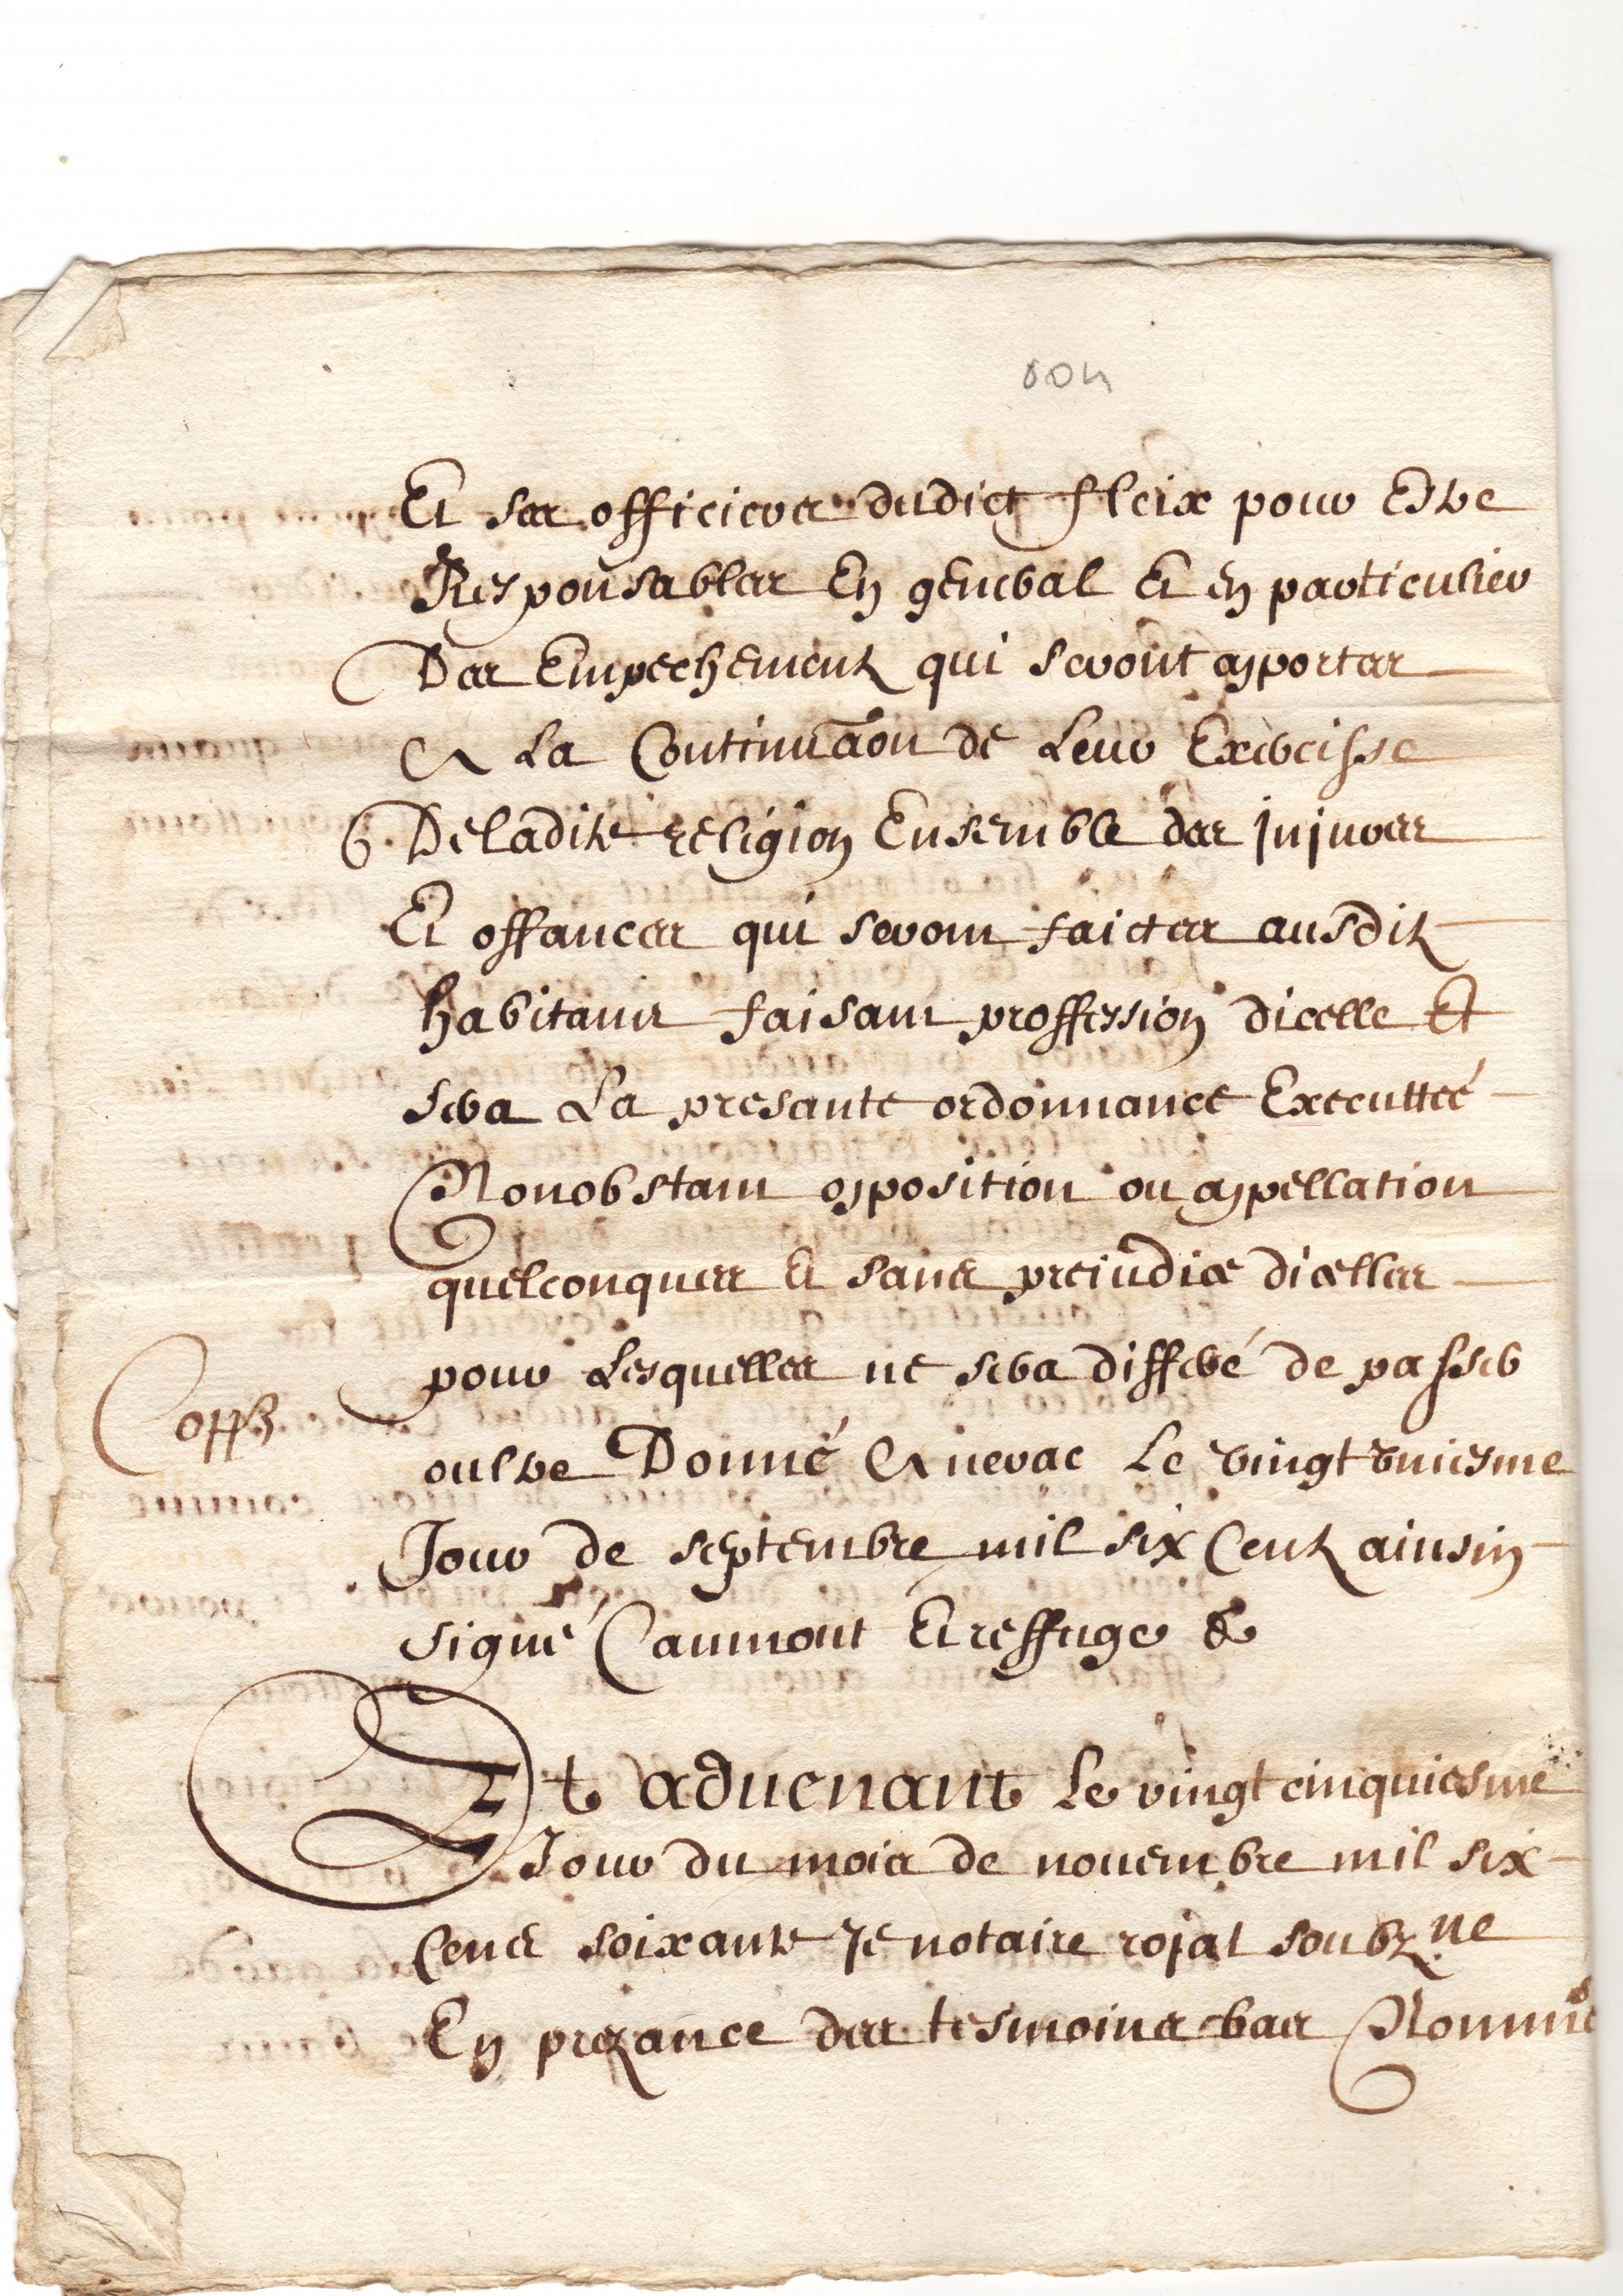 Et ses officiers dudict fleix pour Estre
Responsables En general Et en particulier
Des Empechementz qui seront apportes
A La Continuaon de Leur Exercisse
De ladite religion Ensemble des jnjures
Et offances qui seront faictes ausditz
habitans faisant proffession dicelle Et
sera La presante ordonnance Executteé
Nonobstant opposition ou appellation
quelconques Et sans preiudice dicelles
pour Lesquelles ne sera differé de passer
oultre Donné A nerac Le vingt uniesme
Jour de septembre mil six Centz ainsin
signé Caumont Et reffuge &
Et aduenant Le vingt cinquiesme
Jour du mois de nouembre mil six
Cens soixante Je notaire rojal soubz.ne
En prezance des tesmoins bas Nommés